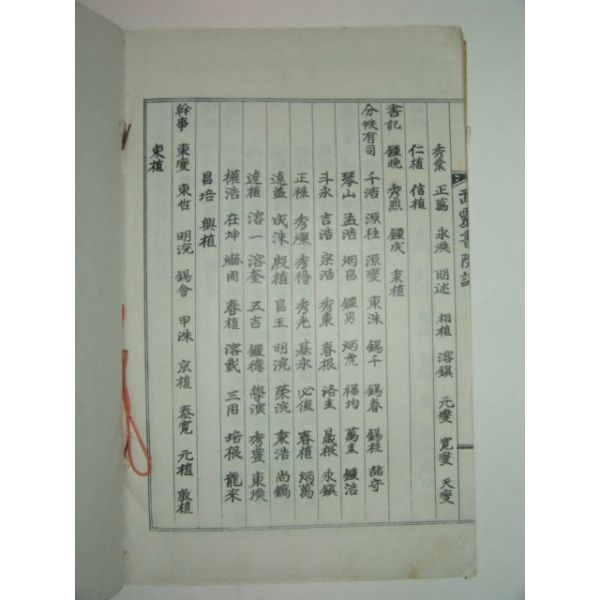 武靈書院誌
秀燮 正萬 永煥 明述 相植 溶鎭 元燮 寬燮 天燮
仁植 信植
書記 鍾晩 秀烈 鍾成 東植
分帙有司 千浩 源柱 源燮 東洙 錫千 錫春 錫柱 喆守
琴山 孟浩 炳昌 鍾男 炳虎 福均 萬圭 鍾浩
斗永 吉浩 宗浩 秀東 春根 洛圭 晟根 永鎭
正祿 秀燦 秀得 秀光 基永 必俊 春植 炳萬
遠益 成洙 殷植 昌玉 明浣 榮浣 秉浩 尚鎬
達植 溶一 溶奎 五吉 鍾德 學演 秀豊 東煥
權浩 在坤 春植 溶載 三用 培根 龍來
昌培 興植
幹事 東燮 東哲 明浣 錫會 甲洙 京植 泰寬 元植 敦植
東植